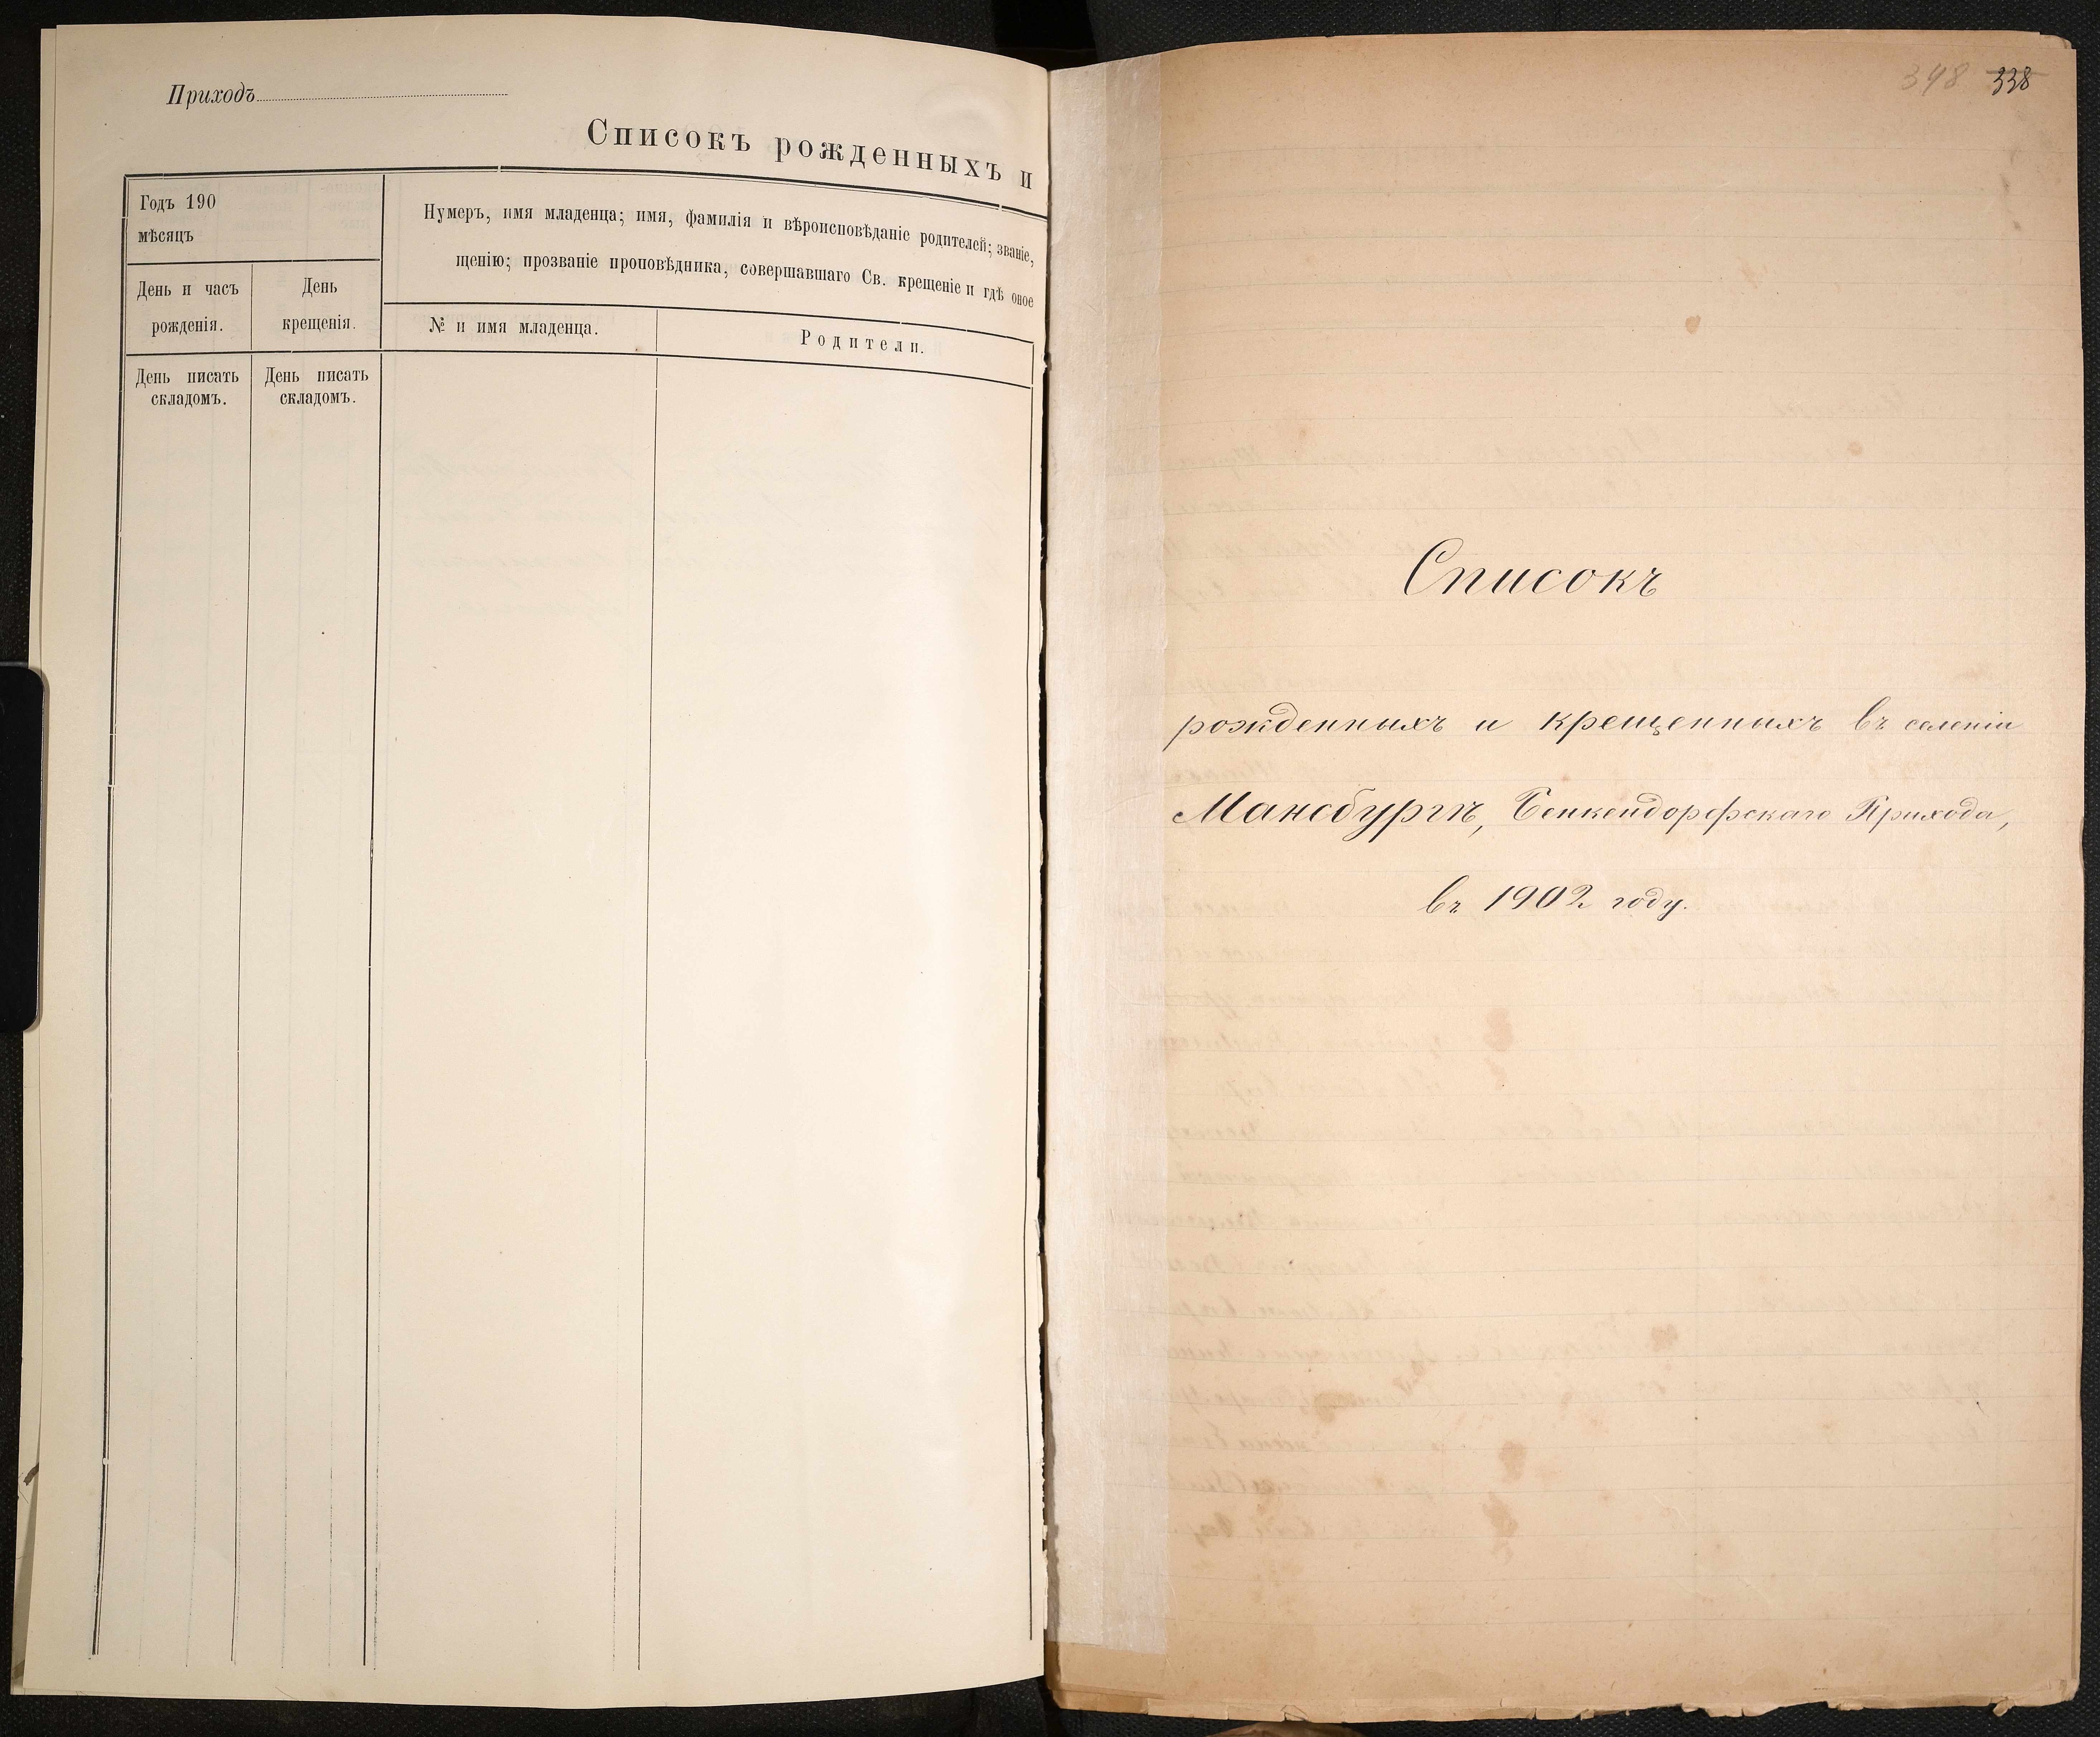 Приходъ
Списокъ рожденныхъ и
Годъ 190
мѣсяцъ
Нумеръ, имя младенца; имя, фамилія и вѣроисповѣданіе родителей; званіе,
щенію; прозваніе проповѣдника, совершавшаго Св. крещеніе и гдѣ оное
День и часъ
рожденія.
День
крещенія.
№ и имя младенца.
Родители.
День писать
складомъ.
День писать
складомъ.
348 338
Списокъ
рожденныхъ и крещенныхъ въ селеніи
Мансбургъ, Бенкендорфскаго Прихода,
въ 1902 году.